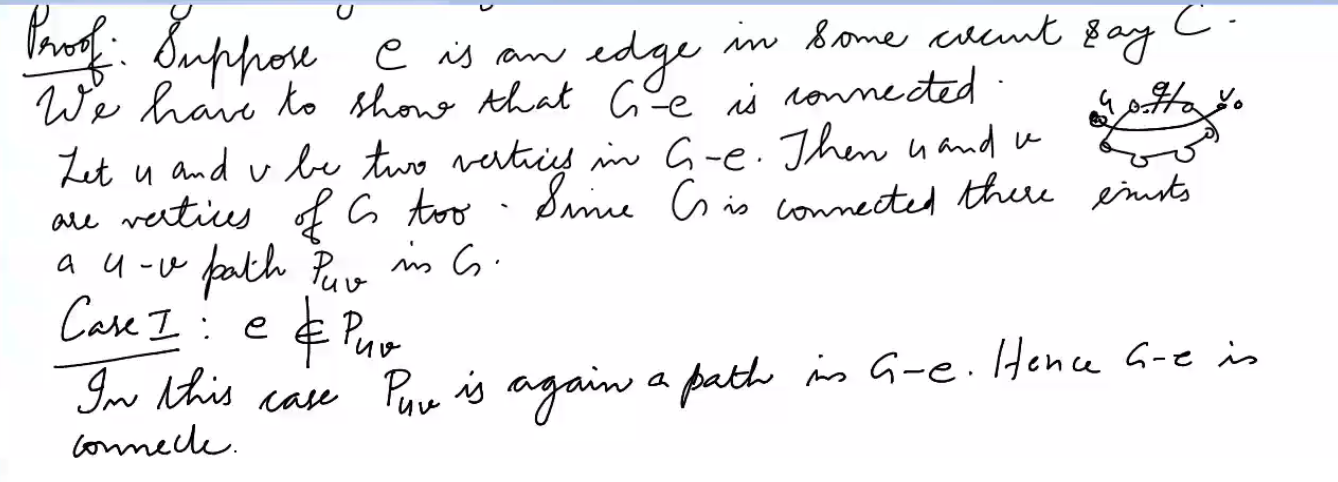 Proof: Suppose e is an edge in some circuit say C.
We have to show that G-e is connected.
Let u and v be two vertices in G-e. Then u and v
are vertices of G too. Since G is connected there exists
a u-v path Puv in G.
Case I : e ∉ Puv
In this case Puv is again a path in G-e. Hence G-e is
connecte.